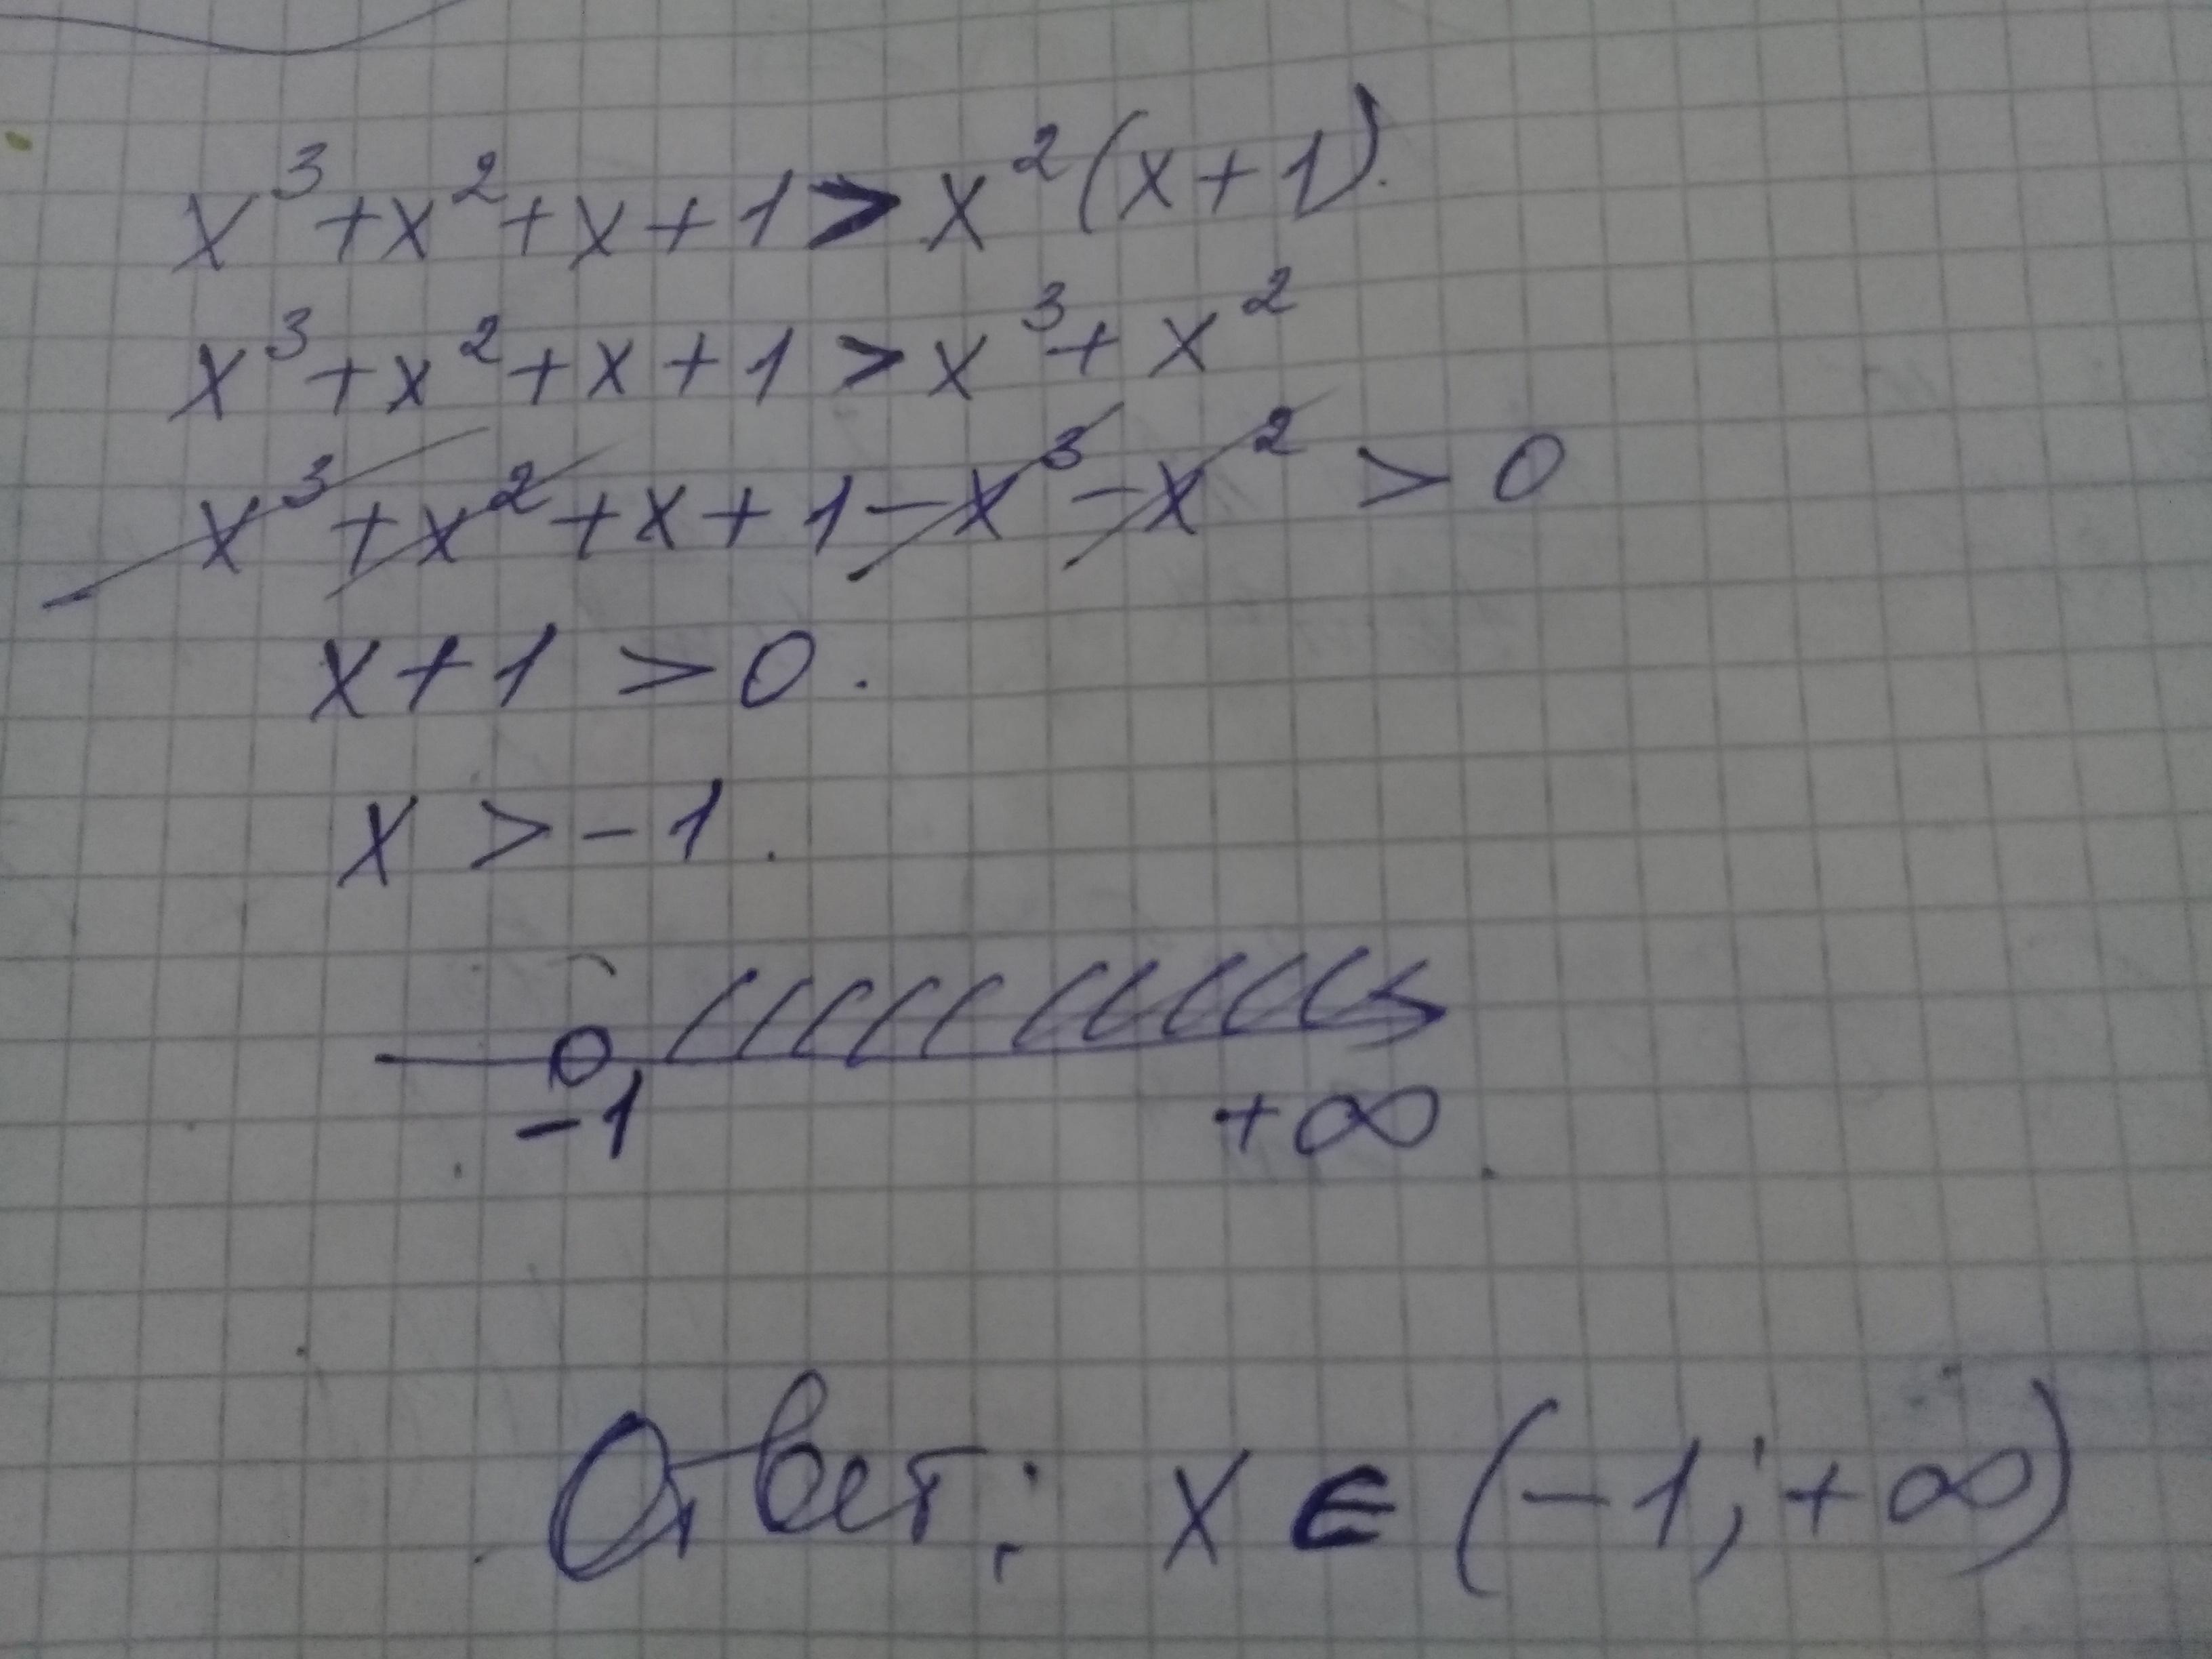 x³+x²+x+1>x²(x+1).
x³+x²+x+1>x³+x²
x³+x²+x+1-x³-x²>0
x+1>0.
x>-1.
-1 +∞
Ответ: x∈(-1;+∞)